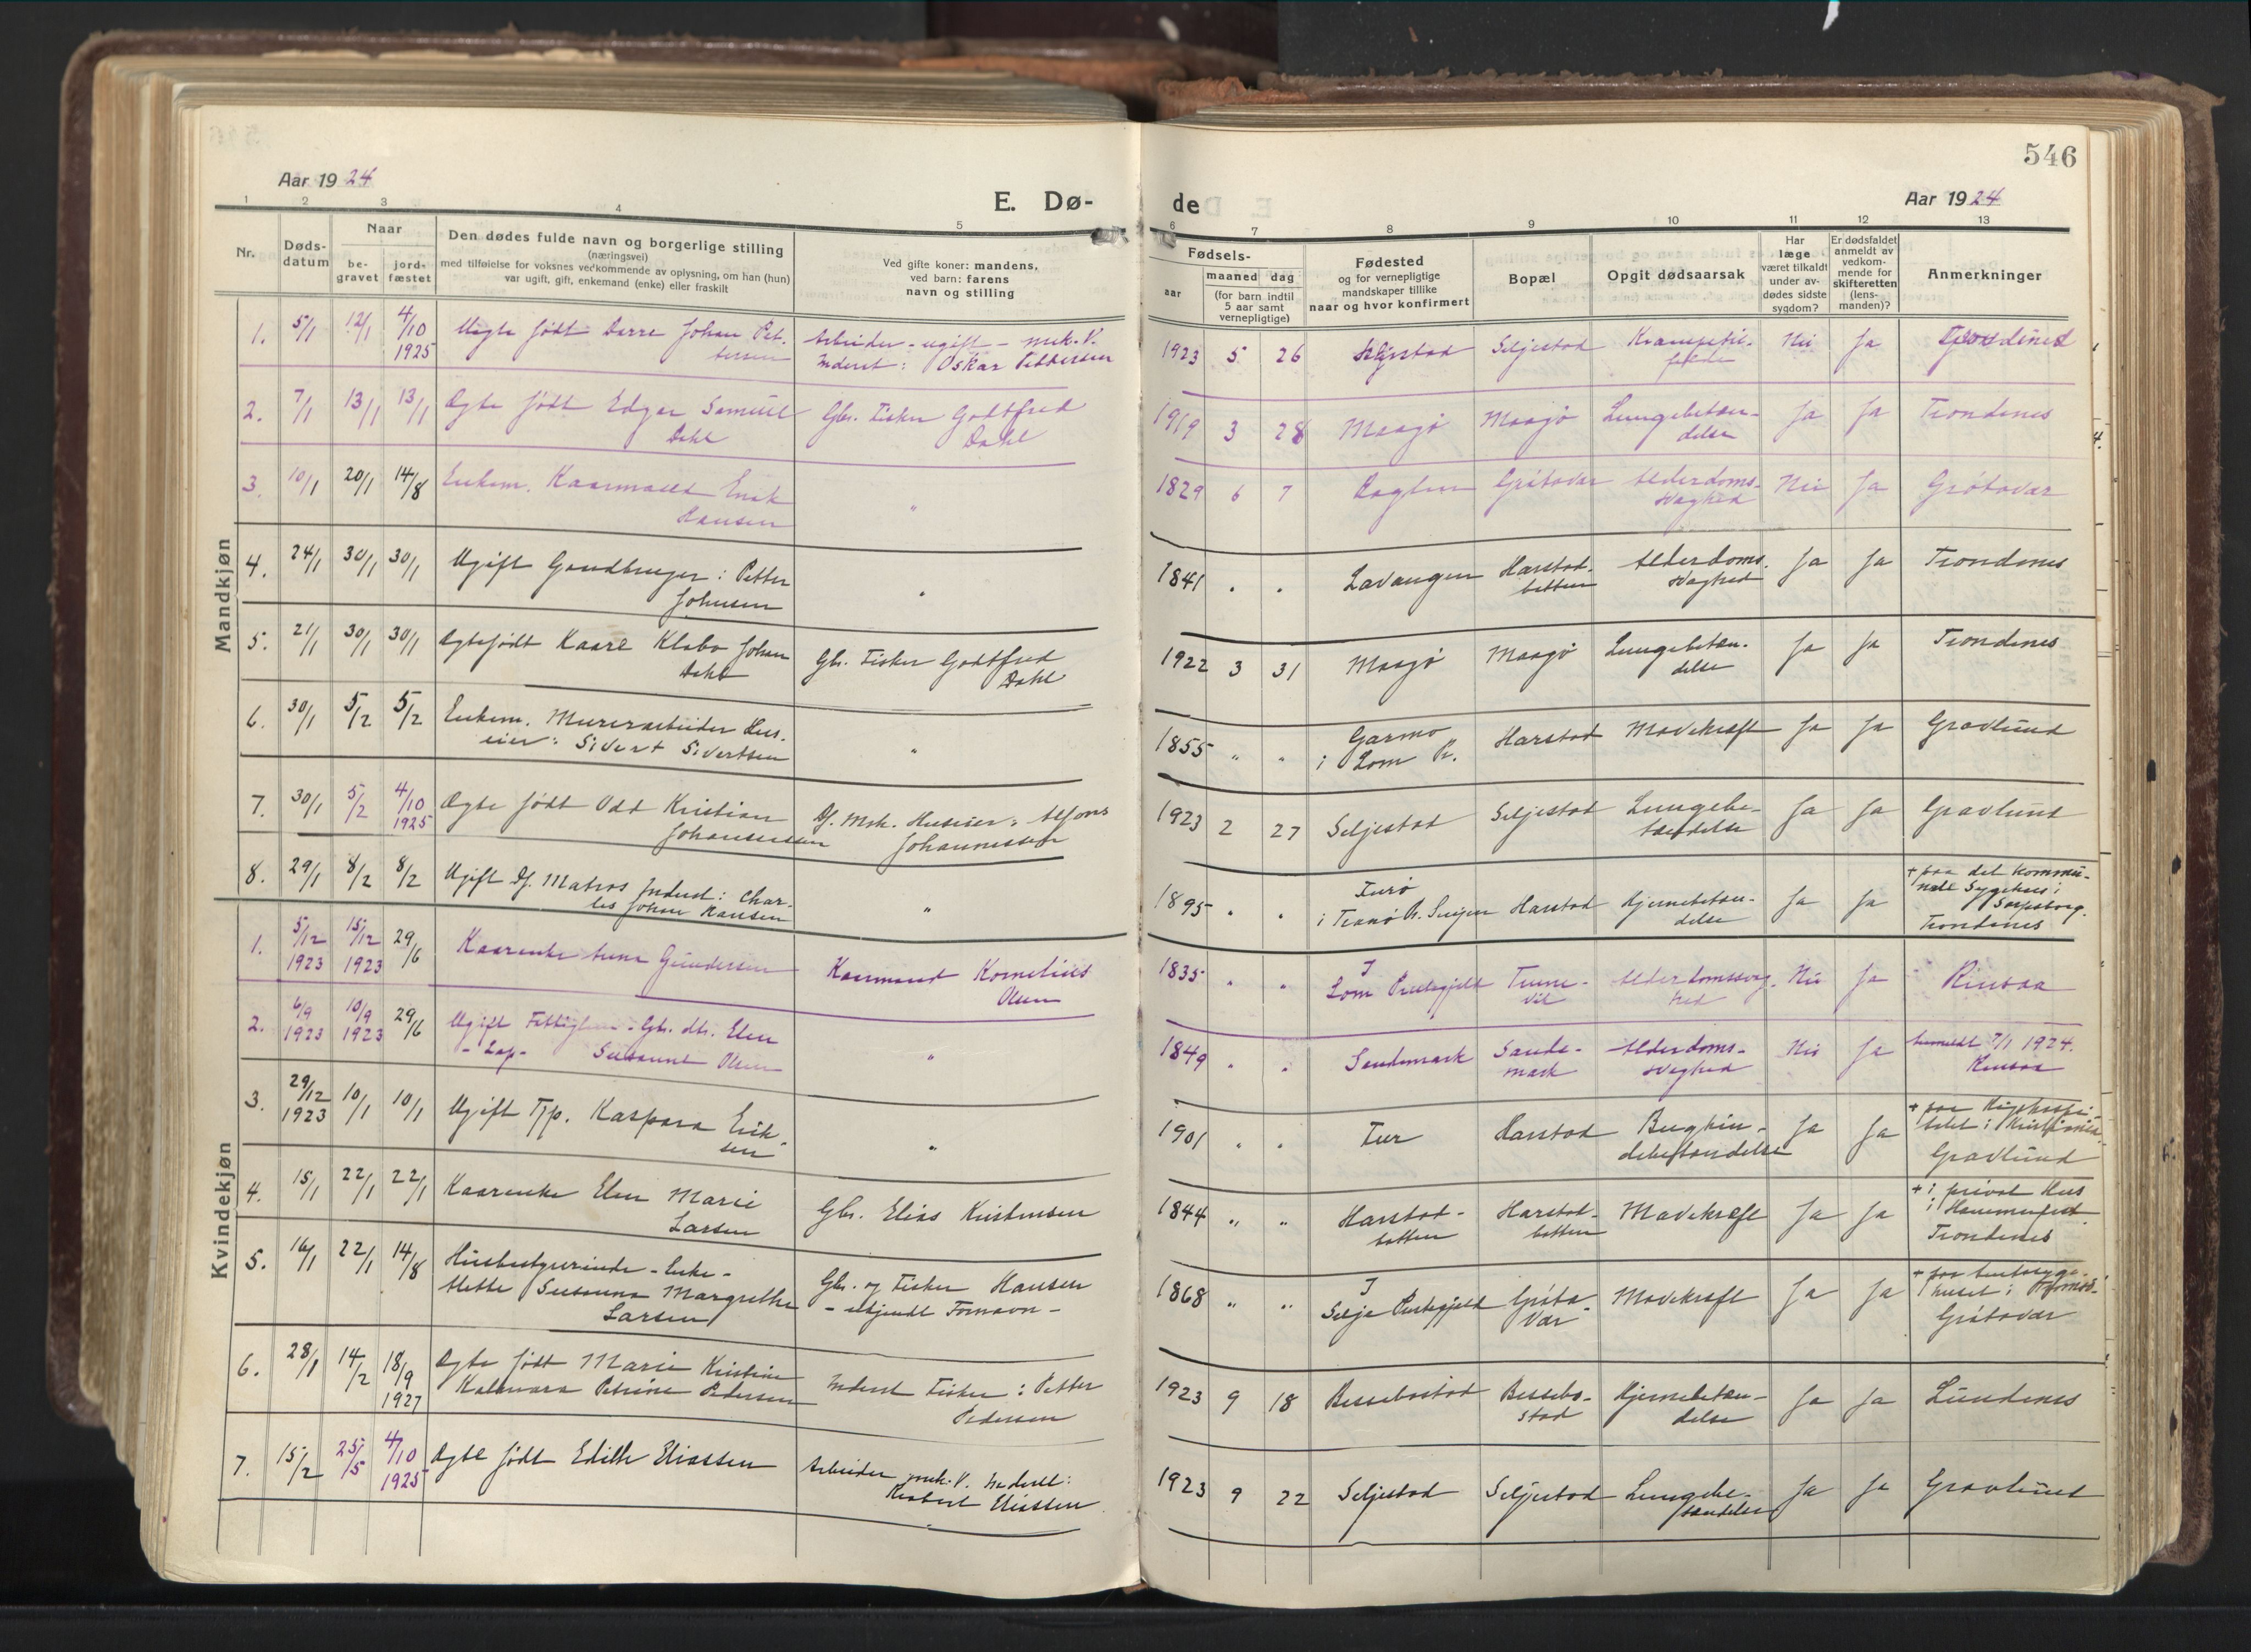 546
Aar 1924
E. Dø-
de
Aar 1924
1 2 3 4 5 6 7 8 9 10 11 12 13
Nr.
Døds-
datum
Naar
be-
gravet
jord-
fæstet
Den dødes fulde navn og borgerlige stilling
(næringsvei)
med tilføielse for voksnes vedkommende av oplysning, om han (hun)
var ugift, gift, enkemand (enke) eller fraskilt
Ved gifte koner: mandens,
ved barn: farens
navn og stilling
Fødsels-
aar
maaned dag
(for barn indtil
5 aar samt
vernepligtige)
Fødested
og for vernepligtige
mandskaper tillike
naar og hvor konfirmert
Bopæl
Opgit dødsaarsak
Har
læge
været tilkaldt
under av-
dødes sidste
sygdom?
Er dødsfaldet
anmeldt av
vedkom-
mende for
skifteretten
(lens-
manden)?
Anmerkninger
Mandkjøn
1. 5/1 12/1 4/10 1925
født Johan Pet-
tersen
Arbeider - ugift - mek. V.
Inderst: Oskar Pettersen
1923 5 26 Seljestad Seljestad Nei Ja Trondenes
2. 7/1 13/1 13/1 Ægte født Edgar Samuel
Dahl
Gbr. Fisker Godtfred
Dahl
1919 3 28 Maagø Maagø Lungebetæn-
delse Ja Ja Trondenes
3. 10/1 20/1 14/8 Enkem. Kaarmand Erik
Hansen
"
1829 6 7 Grøtavær Alderdoms-
svaghed Nei Ja Grøtavær
4. 24/1 30/1 30/1 Ugift Gaardbruger: Petter
Johnsen
"
1841 " " Lavangen Harstad-
botten Alderdoms-
svaghed Ja Ja Trondenes
5. 21/1 30/1 30/1 Ægtefødt Kaare Klabo Johan
Dahl
Gbr. Fisker Godtfred
Dahl
1922 3 31 Maagø Maagø Lungebetæn-
delse Ja Ja Trondenes
6. 30/1 5/2 5/2 Enkem. Murerarbeider Hus-
eier: Sivert Sivertsen
"
1855 " " Garmo
i Lom Pr. Harstad Mavekræft Ja Ja Gravlund
7. 30/1 5/2 4/10 1925 Ægte født Odd Kristian
Johannessen
Df. Msk. Huseier: Alfons
Johannessen
1923 2 27 Seljestad Seljestad Lungebe-
tændelse Ja Ja Gravlund
8. 29/1 8/2 8/2 Ugift Df. Matros Inderst: Char-
les Johan Hansen
"
1895 " " Furø
i Tranø Pr. Senjen Harstad Hjernebetæn-
delse Ja Ja + paa det kommu-
nale Sygehus i
Sarpsborg.
Trondenes
Kvindekjøn
1. 5/12 1923 15/12 1923 29/6 Kaarenke Anne Gundersen
Kaarmand Kornelius
Olsen
1835 " " I
Lom Prestegjeld Alderdomssvag-
hed Nei Ja Kinsaa
2. 6/9 1923 10/9 1923 29/6 Ugift Gbr. dtr. Elen
- Lap - Susanne Olsen
"
1849 " " Sandemark Sande-
mark Alderdoms-
svaghed Nei Ja Anmeldt 7/1 1924.
Kinsaa
3. 29/12 1923 10/1 10/1 Ugift Tjp. Kaspara Erik-
sen
"
1901 " " Harstad Bughin-
debetændelse Ja Ja + paa Rigshospi-
talet i Kristiania.
Gravlund
4. 15/1 22/1 22/1 Kaarenke Elen Marie
Larsen
Gbr. Elias Kristensen
1844 " " Harstad-
botten Harstad-
botten Mavekræft Ja Ja + i privat Hus
i Hammerfest.
Trondenes
5. 16/1 22/1 14/8 Husbestyrerinde - Enke -
Mette Susanna Margrethe
Larsen
Gbr. og Fisker Hansen
- ukjendt Fornavn -
1868 " " I
Selje Prestegjeld Grøta-
vær Mavekræft Ja Ja + paa Amtssyge-
huset i Tromsø.
Grøtavær
6. 28/1 14/2 18/9 1927 Ægte født Marie Kristine
Petrine Pedersen
Inderst Fisker: Petter
Pedersen
1923 9 18 Bessebostad Bessebo-
stad Hjernebetæn-
delse Ja Ja Lundenes
7. 15/2 25/5 4/10 1925 Ægte født Edith Eliassen
Arbeider mek. V. Inderst:
Eliassen
1923 9 22 Seljestad Seljestad Lungebe-
tændelse Ja Ja Gravlund